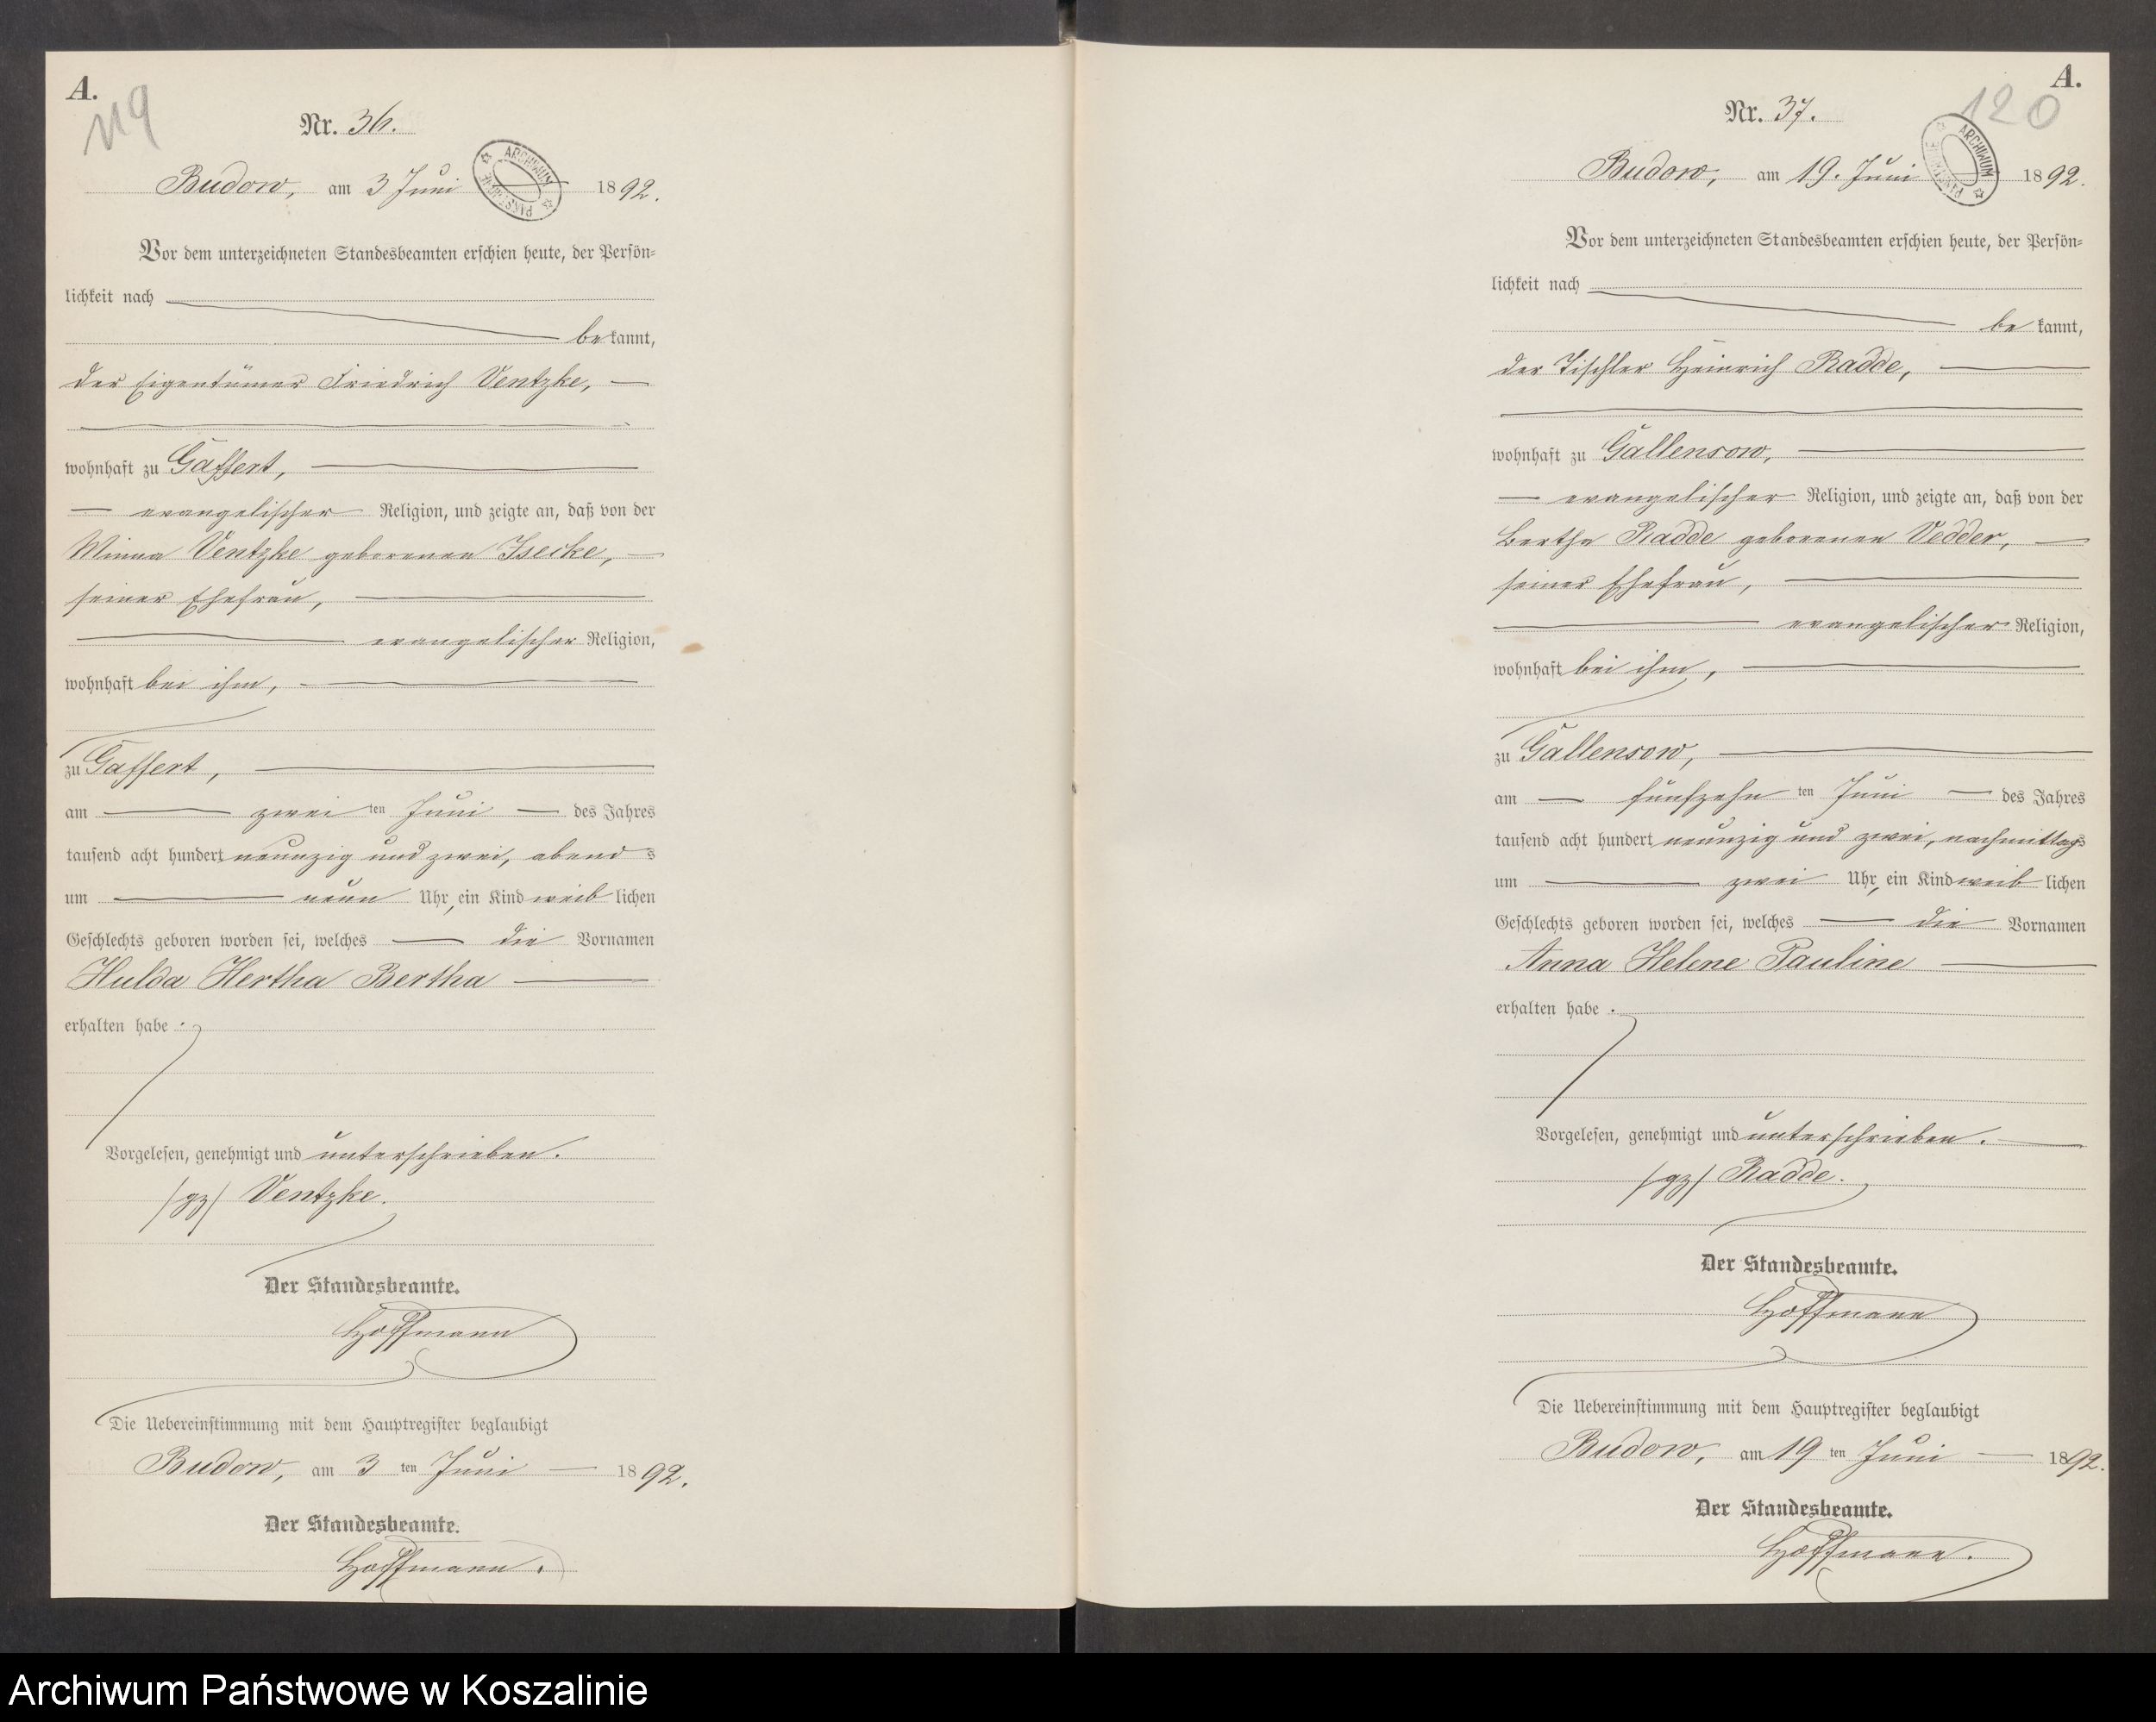 A.
119
Nr. 36.
Budow, am 3 Juni 1892.
ARCHIWUM PAŃSTWOWE
Vor dem unterzeichneten Standesbeamten erschien heute, der Persön-
lichkeit nach
bekannt,
der Eigentümer Friedrich Ventzke,
wohnhaft zu Gaffert,
evangelischer Religion, und zeigte an, daß von der
Minna Ventzke geborenen Isecke,
seiner Ehefrau,
evangelischer Religion,
wohnhaft bei ihm,
zu Gaffert,
am zwei ten Juni des Jahres
tausend acht hundert neunzig und zwei, abends
um neun Uhr, ein Kind weiblichen
Geschlechts geboren worden sei, welches die Vornamen
Hulda Hertha Bertha
erhalten habe.
Vorgelesen, genehmigt und unterschrieben.
/gz/ Ventzke.
Der Standesbeamte.
Hoffmann
Die Uebereinstimmung mit dem Hauptregister beglaubigt
Budow, am 3 ten Juni 1892.
Der Standesbeamte.
Hoffmann.
A.
120
Nr. 37.
Budow, am 19. Juni 1892.
ARCHIWUM PAŃSTWOWE
Vor dem unterzeichneten Standesbeamten erschien heute, der Persön-
lichkeit nach
bekannt,
der Tischler Heinrich Radde,
wohnhaft zu Gallensow,
evangelischer Religion, und zeigte an, daß von der
Bertha Radde geborenen Vedder,
seiner Ehefrau,
evangelischer Religion,
wohnhaft bei ihm,
zu Gallensow,
am fünfzehn ten Juni des Jahres
tausend acht hundert neunzig und zwei, nachmittags
um zwei Uhr, ein Kind weiblichen
Geschlechts geboren worden sei, welches die Vornamen
Anna Helene Pauline
erhalten habe.
Vorgelesen, genehmigt und unterschrieben.
/gz/ Radde.
Der Standesbeamte.
Hoffmann
Die Uebereinstimmung mit dem Hauptregister beglaubigt
Budow, am 19 ten Juni 1892.
Der Standesbeamte.
Hoffmann.
Archiwum Państwowe w Koszalinie